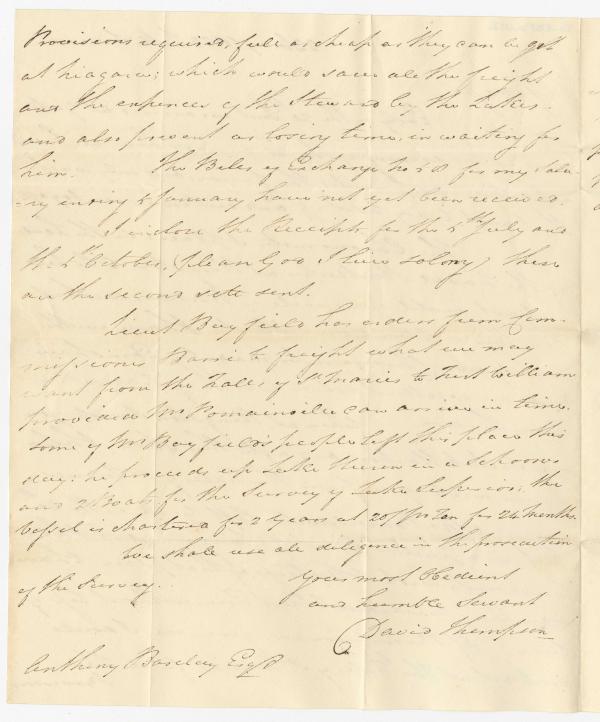 Provisions required, full as cheap as they can be got
at Niagara; which would save all the freight
and the expences of the Steward by the Lakes.
and also prevent as losing time, in waiting for
him. The Bills of Exchange No 48 for my Sala-
=ry ending 4 January have not yet been received.
I inclose the Receipts for the 4th July and
the 4th October, (please God I live so long) these
are the second sets sent.
Lieut Bayfield has orders from Com-
missioner Barrie to freight what we may
want from the Falls of St Maries to Fort William
provided Mr Romainville can arrive in time.
some of Mr Bayfield's people left this place this
day: he proceeds up Lake Huron in a Schooner
and 2 Boats for the Survey of Lake Superior; the
Vessel is chartered for 2 Years at 20/ Pr Ton for 24 Months.
We shall use all diligence in the prosecution
of the Survey.
Your most Obedient
and humble Servant
David Thompson
Anthony Barclay Esqr